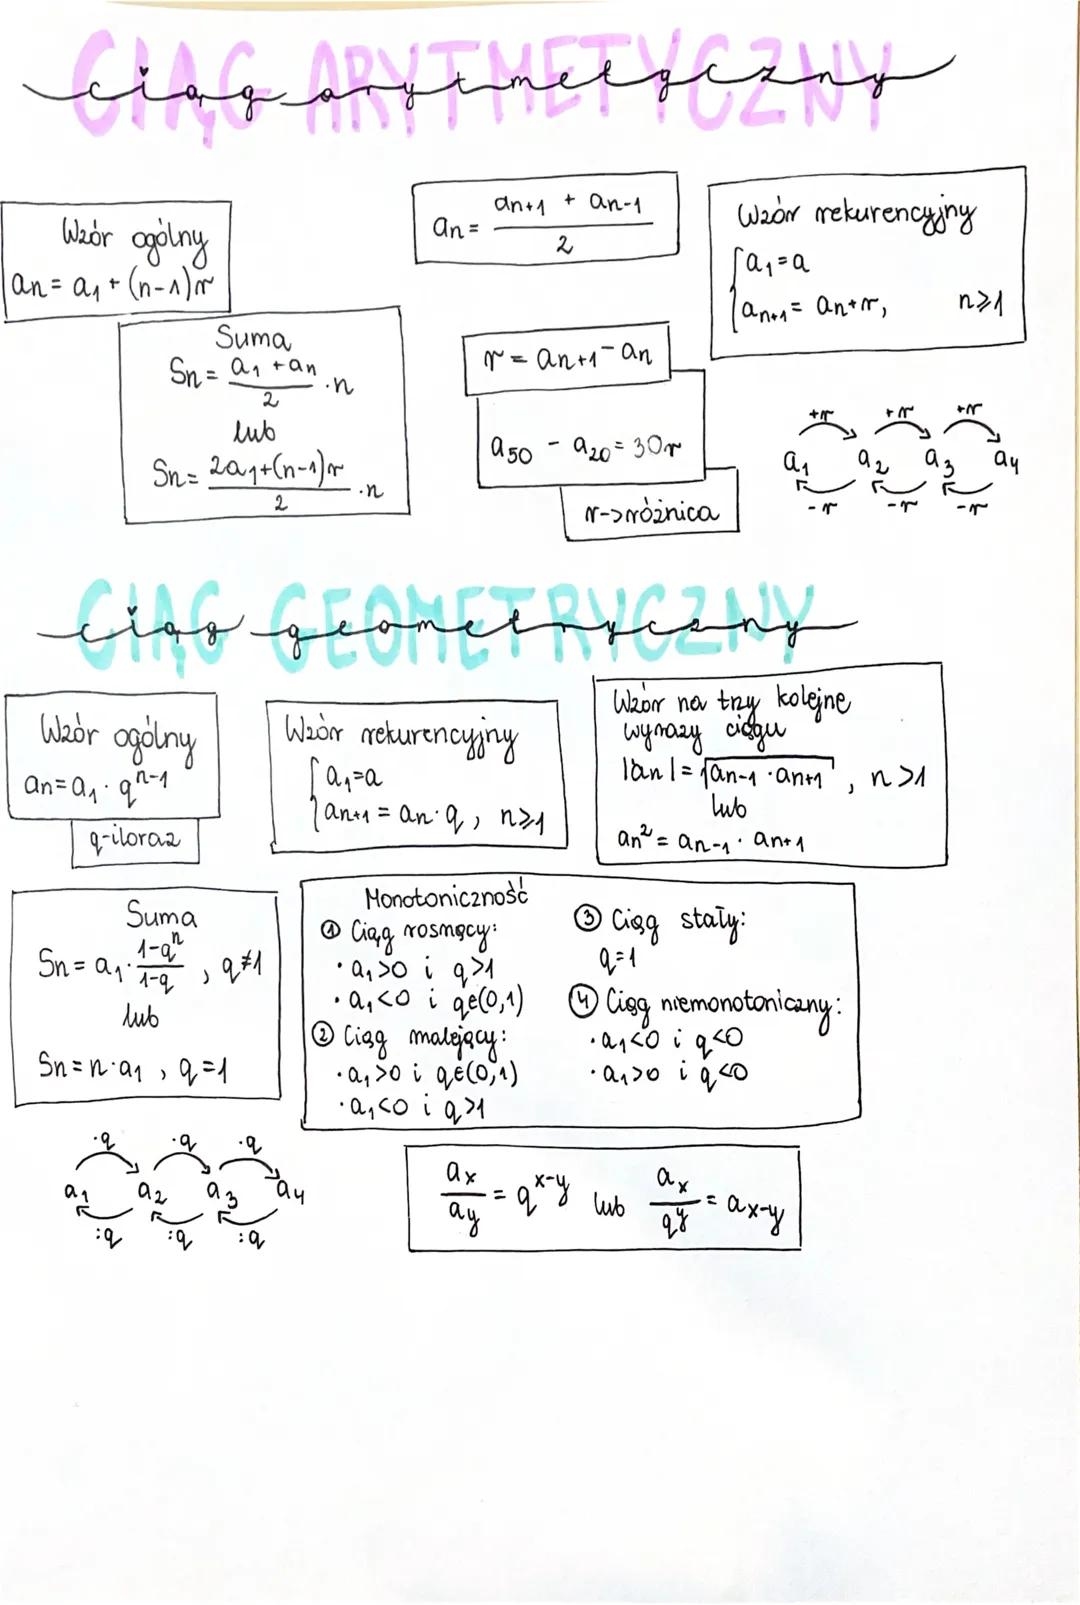 CIĄG ARYTMETYCZNY
ciąg arytmetyczny
Wzór ogólny
an = a₁ + (n-1)r
an = (an+1 + an-1)/2
Wzór rekurencyjny
{a₁ = a
{an+1 = an+r, n≥1
Suma
Sn = (a₁ + an)/2 · n
lub
Sn = (2a₁+(n-1)r)/2 · n
r = an+1 - an
a₅₀ - a₂₀ = 30r
r->różnica
+r +r +r
a₁ a₂ a₃ a₄
-r -r -r
CIĄG GEOMETRYCZNY
ciąg geometryczny
Wzór ogólny
an = a₁ · qⁿ⁻¹
q-iloraz
Wzór rekurencyjny
{a₁=a
{an+1 = an·q, n≥1
Wzór na trzy kolejne
wyrazy ciągu
|an| = √(an-1 · an+1), n>1
lub
an² = an-1 · an+1
Suma
Sn = a₁ · (1-qⁿ)/(1-q), q≠1
lub
Sn = n·a₁, q=1
Monotoniczność
① Ciąg rosnący:
· a₁>0 i q>1
· a₁<0 i q∈(0,1)
② Ciąg malejący:
· a₁>0 i q∈(0,1)
· a₁<0 i q>1
③ Ciąg stały:
q=1
④ Ciąg niemonotoniczny:
· a₁<0 i q<0
· a₁>0 i q<0
·q ·q ·q
a₁ a₂ a₃ a₄
:q :q :q
ax/ay = q^(x-y) lub ax/q^y = ax-y